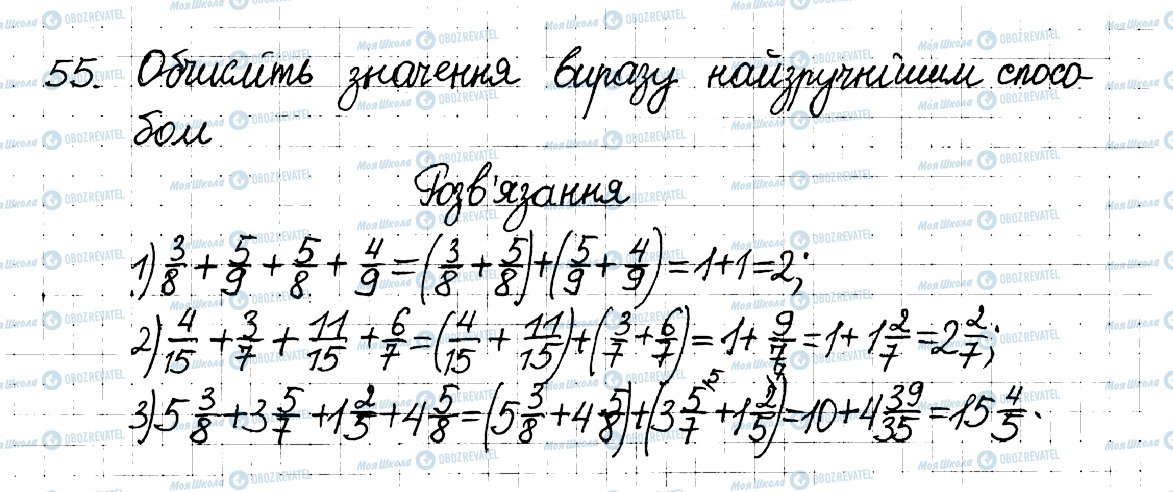 55. Обчисліть значення виразу найзручнішим спосо-
бом
Розв'язання
1) 3/8 + 5/9 + 5/8 + 4/9 = (3/8 + 5/8) + (5/9 + 4/9) = 1 + 1 = 2;
2) 4/15 + 3/7 + 11/15 + 6/7 = (4/15 + 11/15) + (3/7 + 6/7) = 1 + 9/7 = 1 + 1 2/7 = 2 2/7;
3) 5 3/8 + 3 5/7 + 1 2/5 + 4 5/8 = (5 3/8 + 4 5/8) + (3 5/7 \5 + 1 2/5 \7) = 10 + 4 39/35 = 15 4/5.